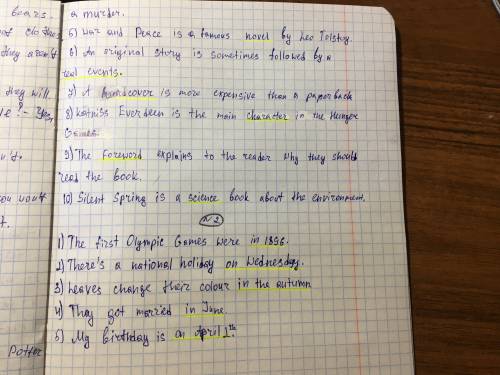 bears.
a murder.
5) War and Peace is a famous novel by Leo Tolstoy.
6) An original story is sometimes followed by a
real events.
7) A hardcover is more expensive than a paperback
they will
8) Katniss Everdeen is the main character in the Hunger
Games.
9) The Foreword explains to the reader why they should
read the book.
10) Silent Spring is a science book about the environment.
N2
1) The first Olympic Games were in 1896.
2) There's a national holiday on Wednesday.
3) Leaves change their colour in the autumn
4) They got married in June.
5) My birthday is on April 1th.
Potter